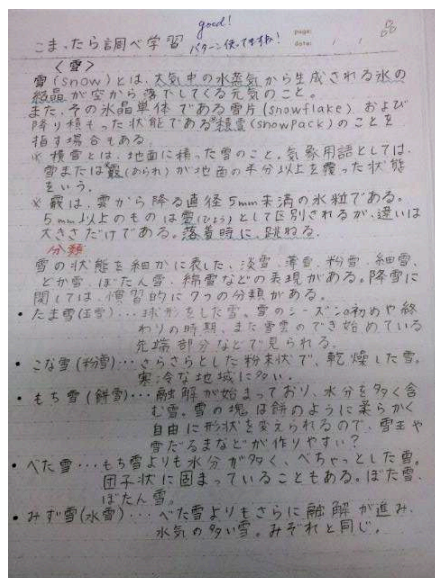 good!
こまったら調べ学習 パターン使ってますね!
page:
date: / /
〈雪〉
雪(snow)とは、大気中の水蒸気から生成される氷の
結晶が空から落下してくる元気のこと。
また、その氷晶単体である雪片(snowflake)および
降り積もった状態である*積雪(snowpack)のことを
指す場合もある。
※ 積雪とは、地面に積った雪のこと。気象用語としては、
雪または*霰(あられ)が地面の半分以上を覆った状態
をいう。
※ 霰は、雲から降る直径5mm未満の氷粒である。
5mm以上のものは雹(ひょう)として区別されるが、違いは
大きさだけである。落着時に、跳ねる。
分類
雪の状態を細かに表した、淡雪、薄雪、粉雪、細雪、
どか雪、ぼたん雪、綿雪などの表現がある。降雪に
関しては、慣習的に7つの分類がある。
• たま雪(玉雪)…球形をした雪。雪のシーズンの初めや終
わりの時期、また雪雲のでき始めている
先端部分などで見られる。
• こな雪(粉雪)…さらさらとした粉末状で、乾燥した雪。
寒冷な地域に多い。
• もち雪(餅雪)…融解が始まっており、水分を多く含
む雪。雪の塊は餅のように柔らかく
自由に形状を変えられるので、雪玉や
雪だるまなどが作りやすい?
• べた雪…もち雪よりも水分が多く、べちゃっとした雪。
団子状に固まっていることもある。ぼた雪、
ぼたん雪。
• みず雪(水雪)…べた雪よりもさらに融解が進み、
水気の多い雪。みぞれと同じ。